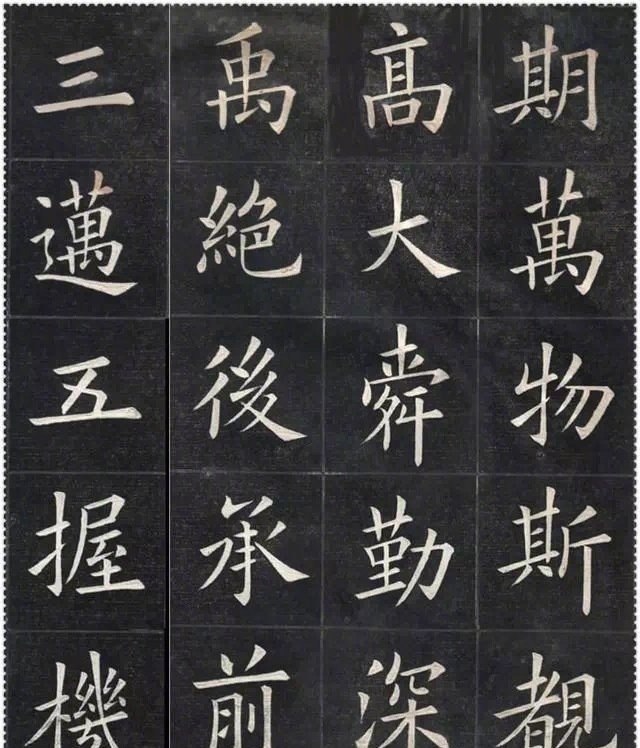 期萬物斯覩
高大舜勤深
禹絕後承前
三邁五握機